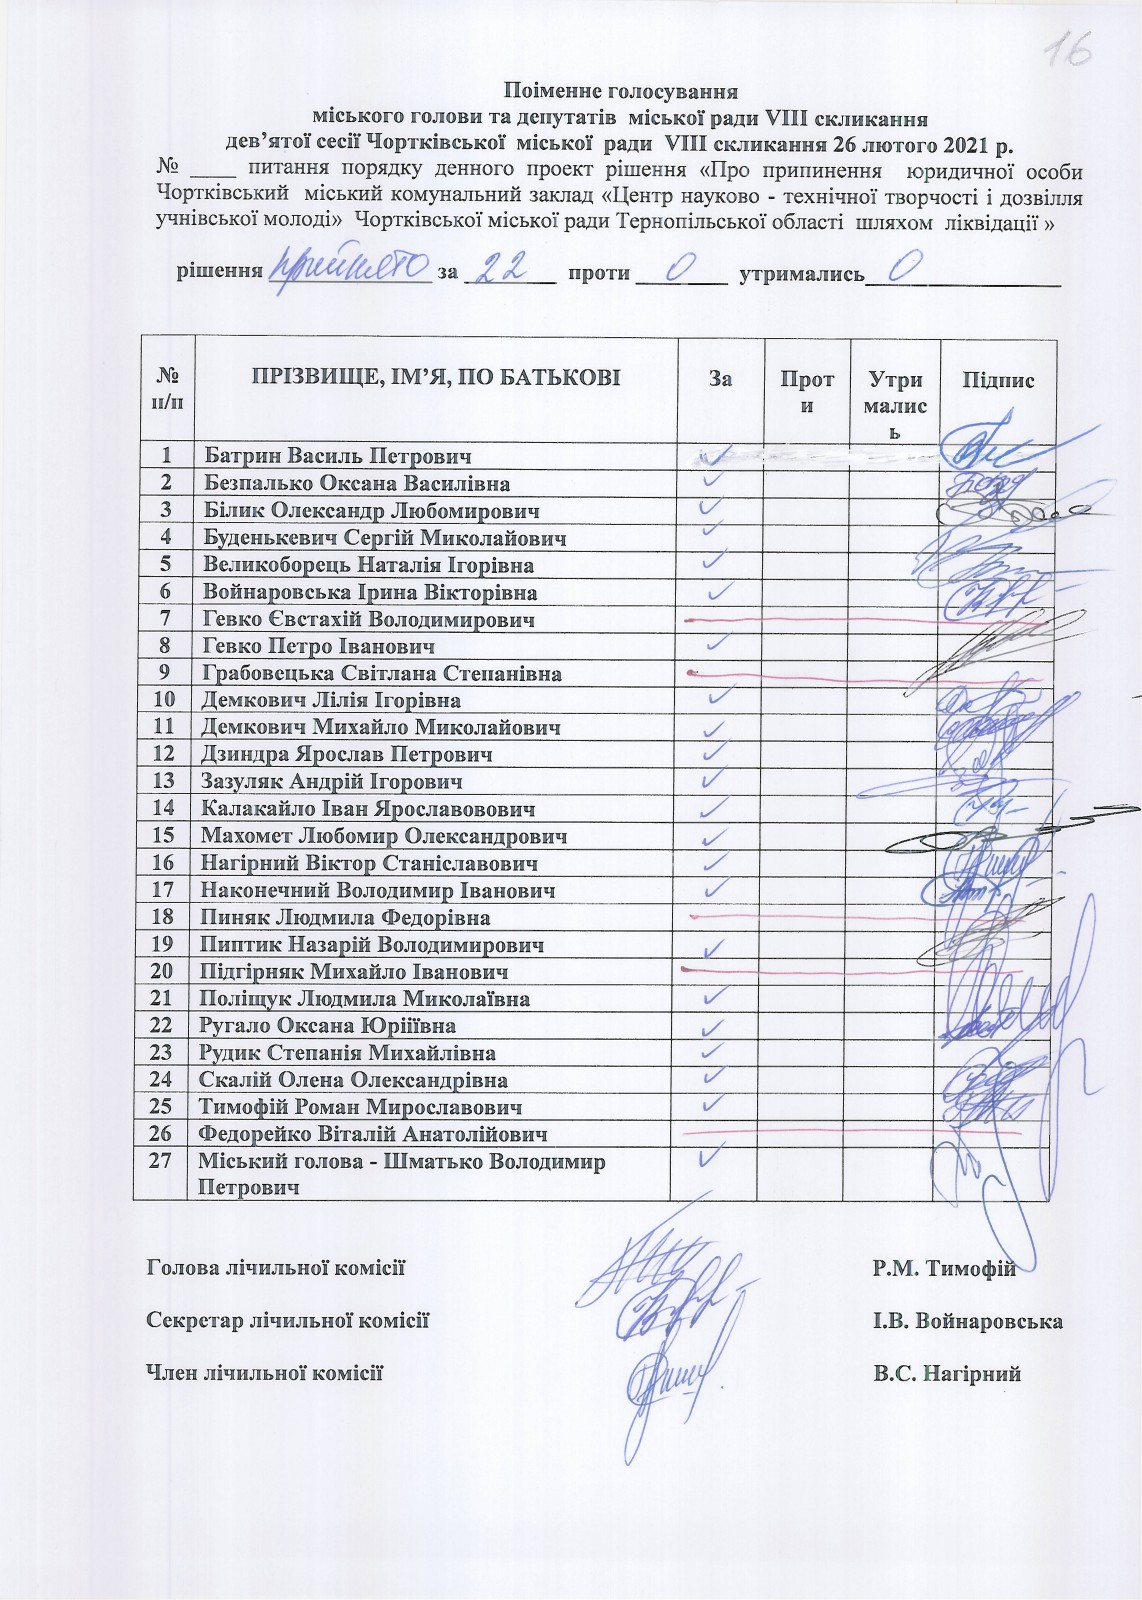 16
Поіменне голосування
міського голови та депутатів міської ради VIII скликання
дев’ятої сесії Чортківської міської ради VIII скликання 26 лютого 2021 р.
№ ____ питання порядку денного проект рішення «Про припинення юридичної особи
Чортківський міський комунальний заклад «Центр науково - технічної творчості і дозвілля
учнівської молоді» Чортківської міської ради Тернопільської області шляхом ліквідації »
рішення прийнято за 22 проти 0 утримались 0
№ п/п ПРІЗВИЩЕ, ІМ’Я, ПО БАТЬКОВІ За Проти Утримались Підпис
1 Батрин Василь Петрович ✓
2 Безпалько Оксана Василівна ✓
3 Білик Олександр Любомирович ✓
4 Буденькевич Сергій Миколайович ✓
5 Великоборець Наталія Ігорівна ✓
6 Войнаровська Ірина Вікторівна ✓
7 Гевко Євстахій Володимирович
8 Гевко Петро Іванович ✓
9 Грабовецька Світлана Степанівна
10 Демкович Лілія Ігорівна ✓
11 Демкович Михайло Миколайович ✓
12 Дзиндра Ярослав Петрович ✓
13 Зазуляк Андрій Ігорович ✓
14 Калакайло Іван Ярославовович ✓
15 Махомет Любомир Олександрович ✓
16 Нагірний Віктор Станіславович ✓
17 Наконечний Володимир Іванович ✓
18 Пиняк Людмила Федорівна
19 Пиптик Назарій Володимирович ✓
20 Підгірняк Михайло Іванович
21 Поліщук Людмила Миколаївна ✓
22 Ругало Оксана Юріїївна ✓
23 Рудик Степанія Михайлівна ✓
24 Скалій Олена Олександрівна ✓
25 Тимофій Роман Мирославович ✓
26 Федорейко Віталій Анатолійович
27 Міський голова - Шматько Володимир ✓
Петрович
Голова лічильної комісії Р.М. Тимофій
Секретар лічильної комісії І.В. Войнаровська
Член лічильної комісії В.С. Нагірний